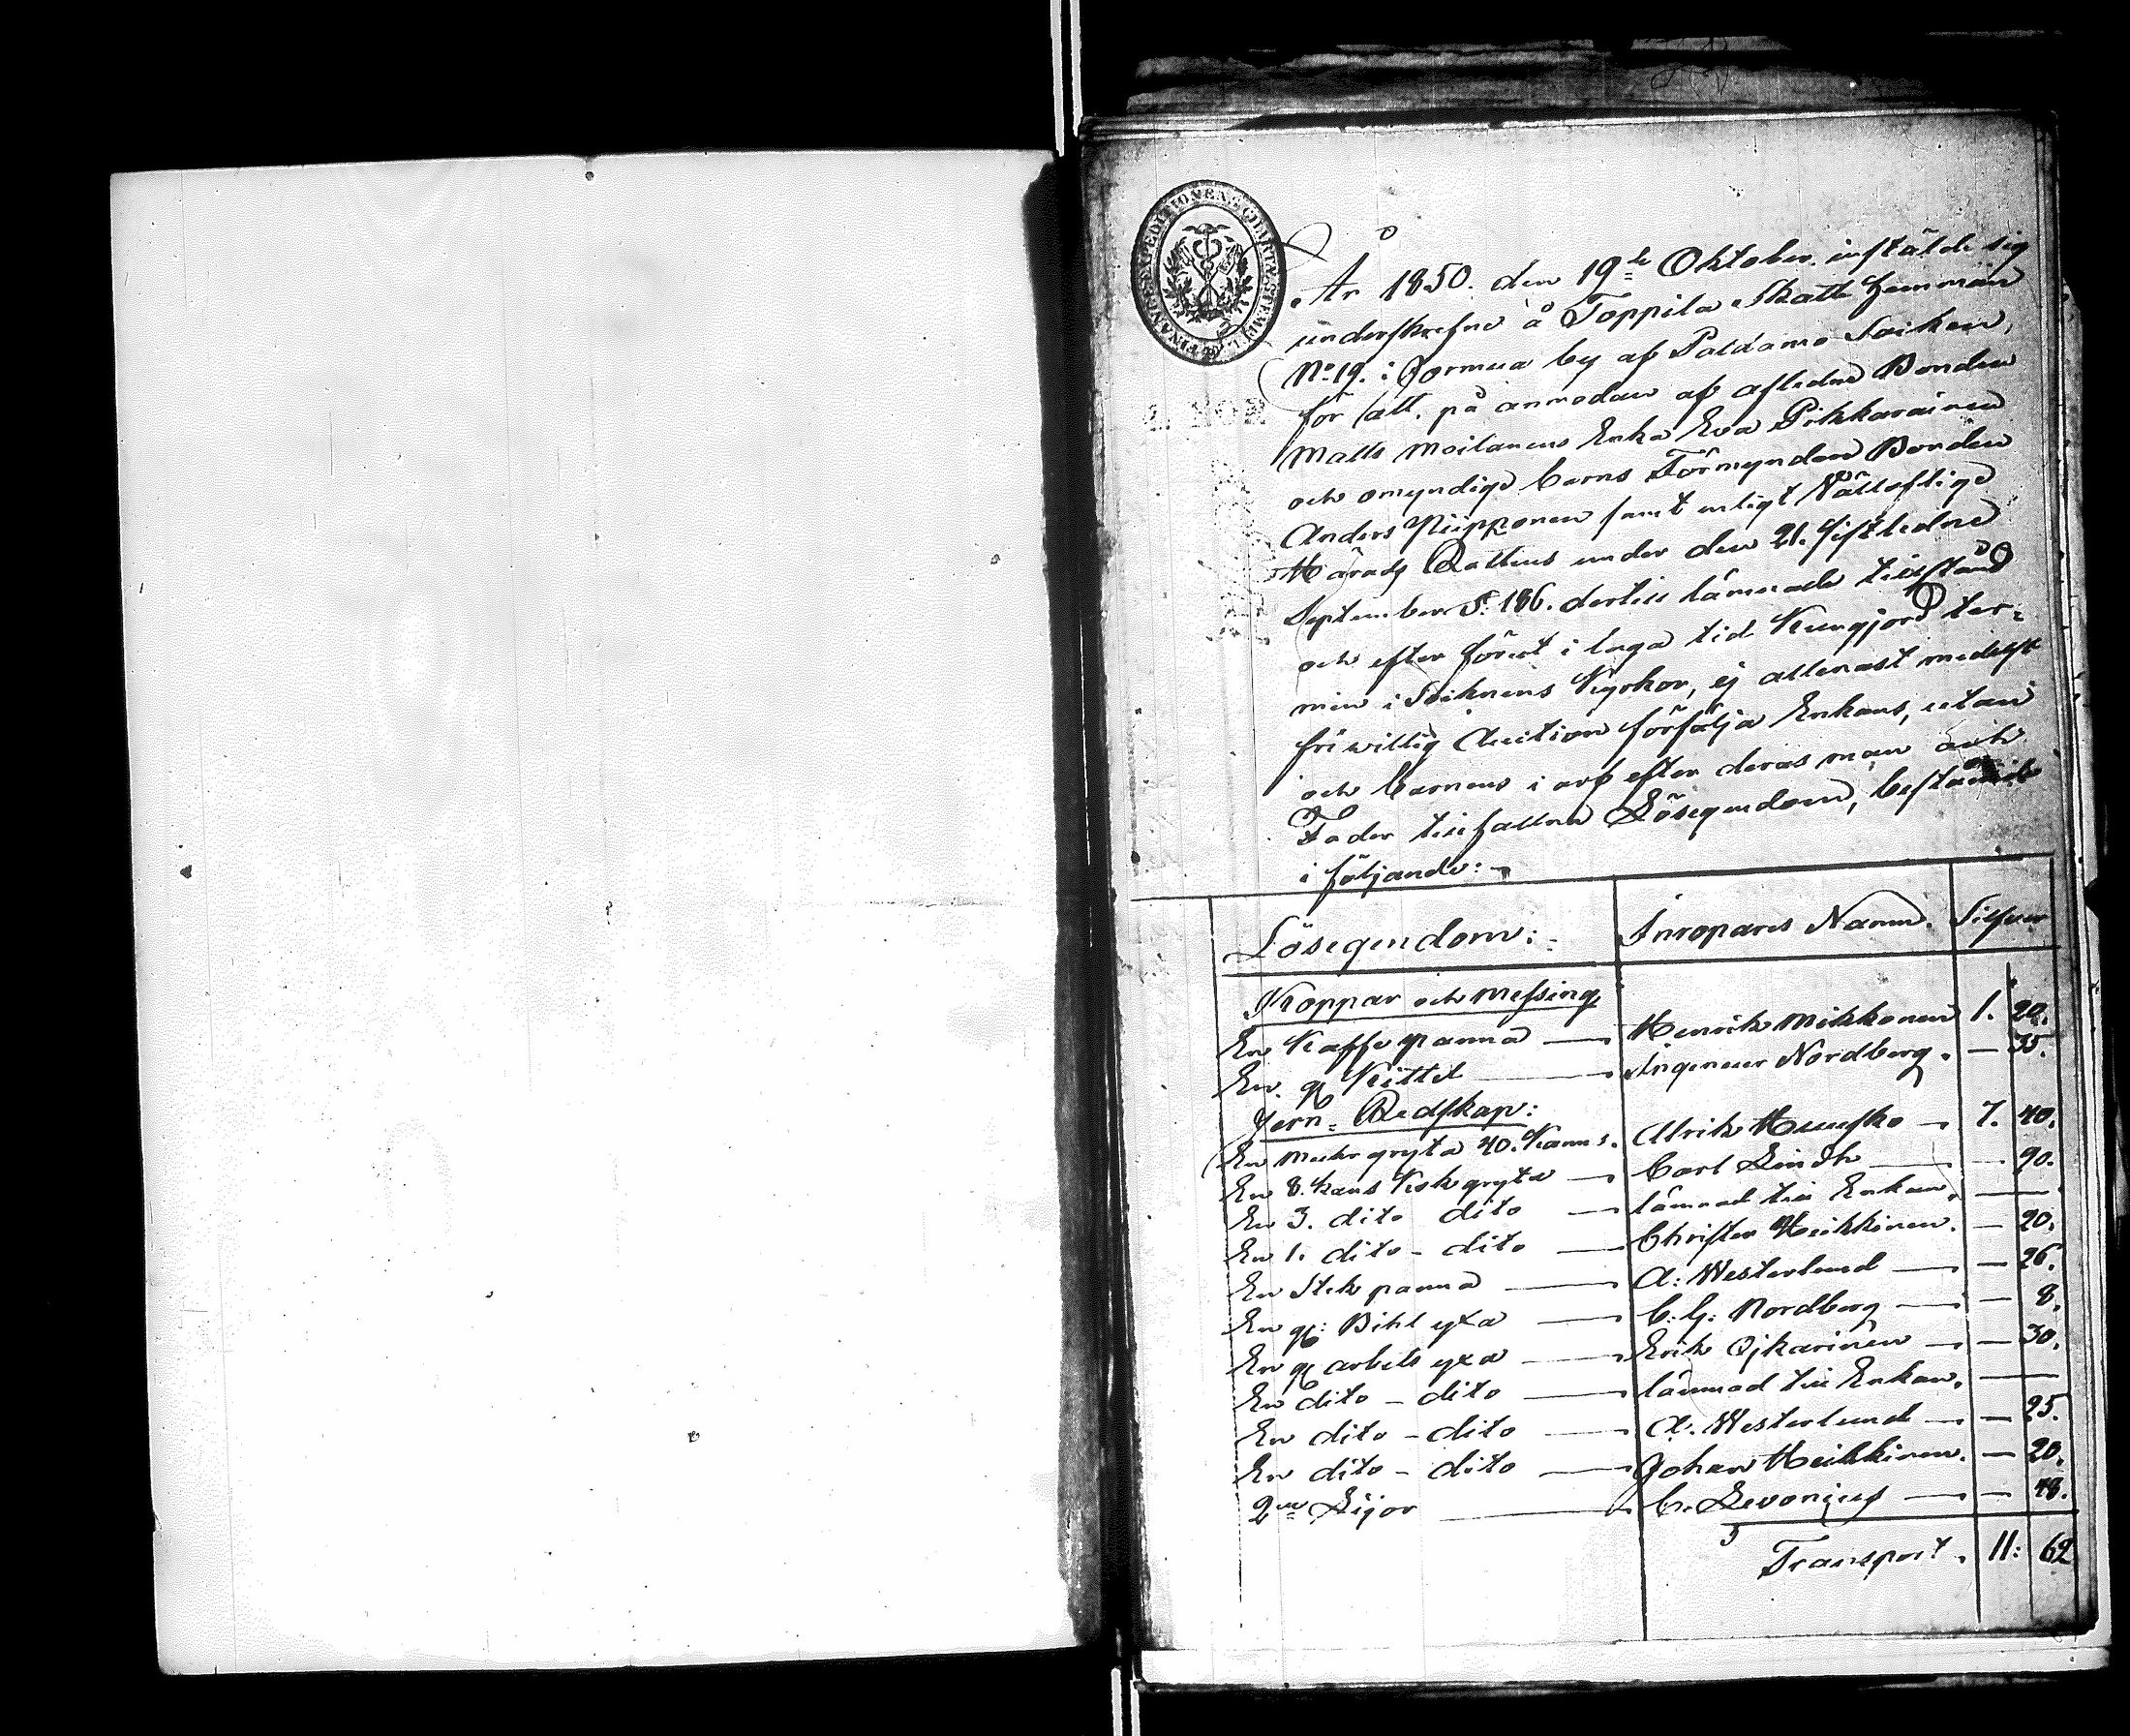 FINANCE EXPEDITIONENS CHARTÆ STEMPEL
År 1850. den 19de Oktober instälde sig
underskrefne å Toppila Skatte hemman
No 19. i Jormua by af Paldamo Socken,
för att, på anmodan af aflidne Bonden
Matts Moilanens Enka Eva Pikkarainen
och omyndige barns Förmyndare Bonden
Anders Piipponen samt enligt Vällofliga
Härads Rättens under den 21. sistledne
September §. 186. dertill lämnade tillstånd
och efter förut i laga tid Kungjord ter-
min i Socknens Kyrkor, ej allenast medelst
friwillig Auction försälja Enkans, utan
och barnens i arf efter deras man och
Fader tillfallna Lösegendom, bestående
i följande:
Lösegendom: Inropares Namn. Silfver
Koppar och Messing
En Kaffe panna — Henrik Mikkonen 1. 20.
En gl Kittel — Ingeneur Nordberg. — 35.
Jern-Redskap:
En Muhr gryta 40. Kanns. Alrik Huusko — 7. 40.
En 8. Kans Kok gryta — Carl Lindh — 90.
En 3. dito dito — lämnad till Enkan. —
En 1. dito - dito — Christer Heikkinen. — 20.
En Stek panna — A: Westerlund — 26.
En gl: Bihl yxa — C: G: Nordberg — 8.
En gl arbets yxa — Erik Ojkarinen — 30.
En dito - dito — lämnad till Enkan. —
En dito - dito — A: Westerlund — 25.
En dito - dito — Johan Heikkinen. — 20.
2ne Lijor — C. Levonius — 48.
Transport. 11: 62